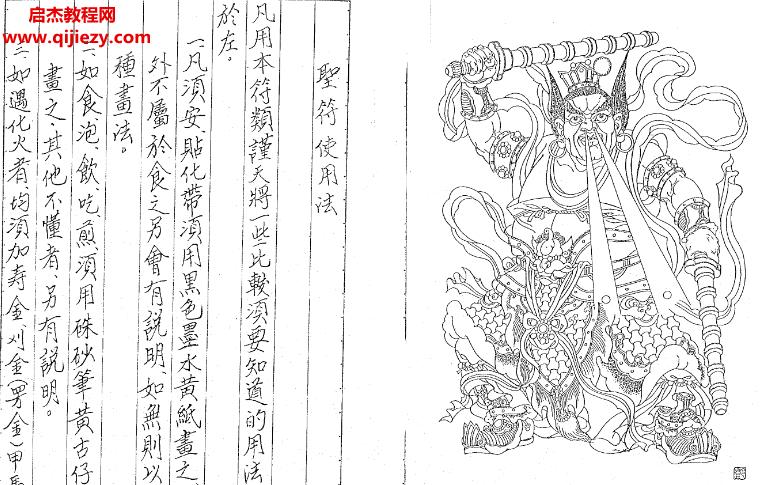 启杰教程网
www.qijiezy.com
聖符使用法
凡用本符類謹天將一些比較須要知道的用法
於左。
一、凡須安、貼化帶須用黑色墨水黃紙畫之
外不屬於食之另會有説明、如無則以
種畫法。
二、如食泡、飲、吃、煎須用硃砂筆黃古仔
畫之、其他不懂者、另有説明。
三、如遇化火者均須加寿金、刈金(男金)甲馬